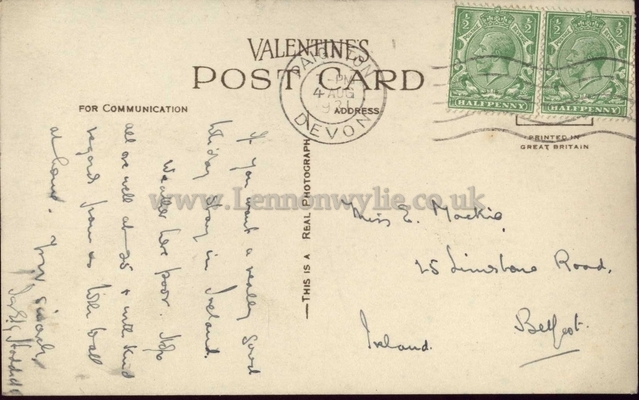 ½ ½ ½ ½
HALFPENNY HALFPENNY
VALENTINE'S
POST CARD
PAIGNTON
PM
4 AUG
DEVON
FOR COMMUNICATION
ADDRESS
PRINTED IN
GREAT BRITAIN
THIS IS A REAL PHOTOGRAPH
www.Lennonwylie.co.uk
If you want a really good
holiday stay in Ireland.
Weather here poor. Hope
all are well at 25 & with kind
regards from us both to all
at hand. Yours sincerely
Miss E. Mackie,
25 Limestone Road,
Belfast.
Ireland.